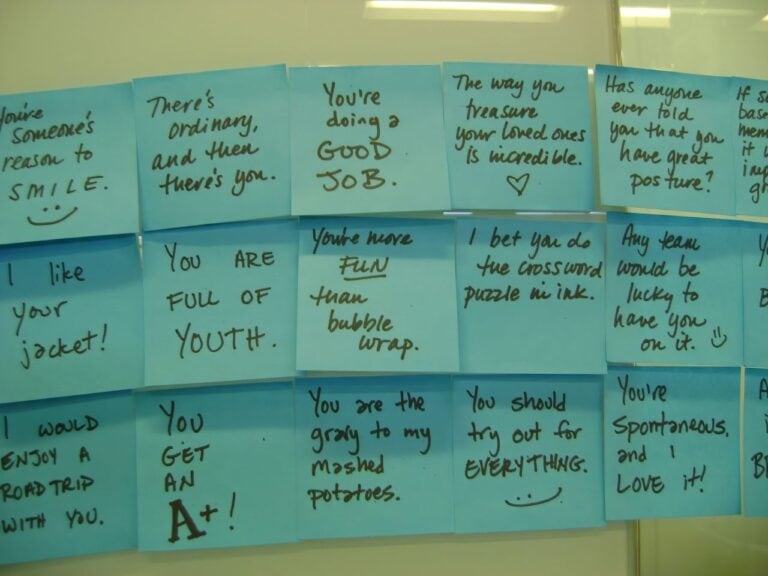 You're
someone's
reason to
SMILE.
There's
ordinary,
and then
there's you.
You're
doing a
GOOD
JOB.
The way you
treasure
your loved ones
is incredible.
Has anyone
ever told
you that you
have great
posture?
If
I like
your
jacket!
YOU ARE
FULL OF
YOUTH.
You're more
FUN
than
bubble
wrap.
I bet you do
the crossword
puzzle in ink.
Any team
would be
lucky to
have you
on it.
I WOULD
ENJOY A
ROAD TRIP
WITH YOU.
YOU
GET
AN
A+!
You are the
gravy to my
mashed
potatoes.
You should
try out for
EVERYTHING.
You're
spontaneous,
and I
LOVE it!